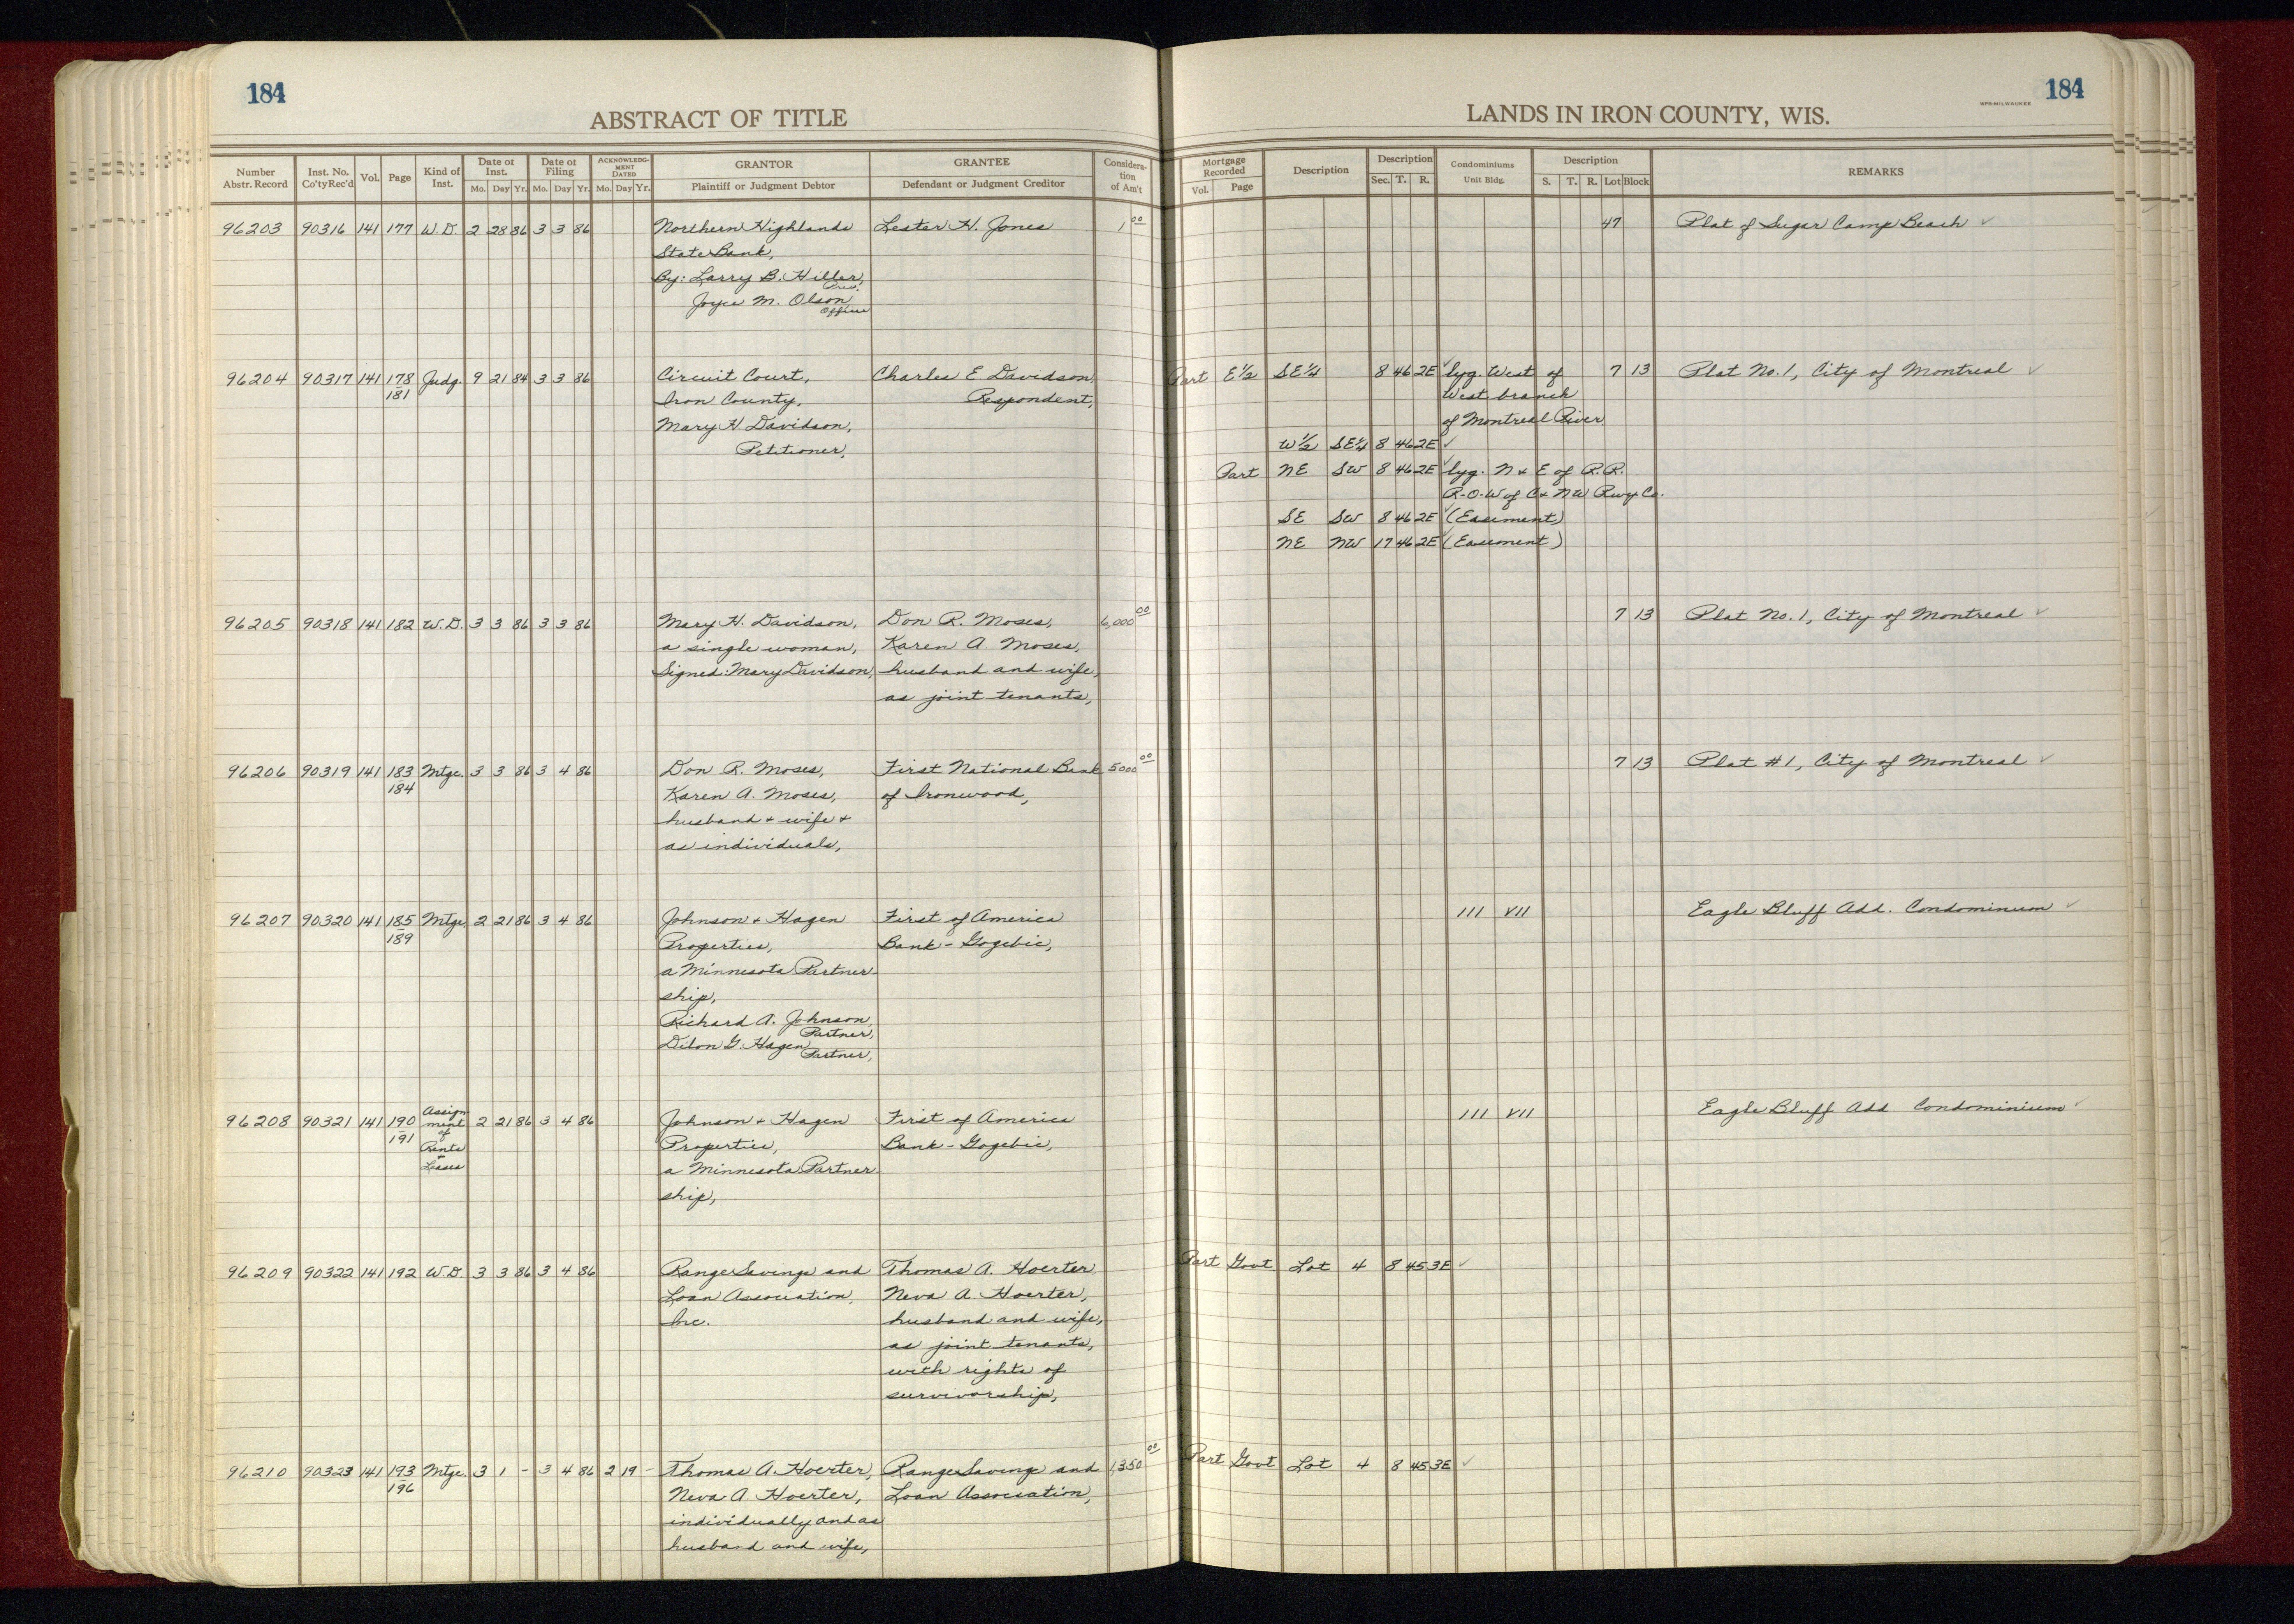 184
ABSTRACT OF TITLE
Number Abstr. Record | Inst. No. Co'ty Rec'd | Vol. | Page | Kind of Inst. | Date of Inst. Mo. Day Yr. | Date of Filing Mo. Day Yr. | ACKNOWLEDGMENT DATED Mo. Day Yr. | GRANTOR Plaintiff or Judgment Debtor | GRANTEE Defendant or Judgment Creditor | Consideration of Am't
96203 90316 141 177 W.D. 2 28 86 3 3 86 Northern Highlands Lester H. Jones 1 00
State Bank,
By: Larry B. Hiller,
Pres.
Joyce M. Olson,
Officer
96204 90317 141 178 Judg. 9 21 84 3 3 86 Circuit Court, Charles E Davidson,
181 Iron County, Respondent,
Mary H Davidson,
Petitioner,
96205 90318 141 182 W.D. 3 3 86 3 3 86 Mary H. Davidson, Don R. Moses, 6,000 00
a single woman, Karen A. Moses,
Signed: Mary Davidson, husband and wife,
as joint tenants,
96206 90319 141 183 Mtge. 3 3 86 3 4 86 Don R. Moses, First National Bank 5000 00
184 Karen A. Moses, of Ironwood,
husband + wife +
as individuals,
96207 90320 141 185 Mtge. 2 21 86 3 4 86 Johnson + Hagen First of America
189 Properties, Bank - Gogebic,
a Minnesota Partner-
ship,
Richard A. Johnson,
Partner,
Dilon G. Hagen
Partner,
96208 90321 141 190 Assign- 2 21 86 3 4 86 Johnson + Hagen First of America
191 ment of Properties, Bank - Gogebic,
Rents a Minnesota Partner
+ Leases ship,
96209 90322 141 192 W.D. 3 3 86 3 4 86 Range Savings and Thomas A. Hoerter
Loan Association, Neva A. Hoerter,
Inc. husband and wife,
as joint tenants,
with rights of
survivorship,
96210 90323 141 193 Mtge. 3 1 - 3 4 86 2 19 - Thomas A. Hoerter, Range Savings and 1,350 00
196 Neva A. Hoerter, Loan Association,
individually and as
husband and wife,
184
WPB-MILWAUKEE
LANDS IN IRON COUNTY, WIS.
Mortgage Recorded Vol. Page | Description | Description Sec. T. R. | Condominiums Unit Bldg. | Description S. T. R. Lot Block | REMARKS
47 Plat of Sugar Camp Beach ✓
Part E½ SE¼ 8 46 2E ✓ lyg. West of 7 13 Plat No. 1, City of Montreal ✓
West branch
of Montreal River
W½ SE¼ 8 46 2E ✓
Part NE SW 8 46 2E ✓ lyg. N + E of R.R.
R-O-W of C + NW Rwy Co.
SE SW 8 46 2E ✓ (Easement)
NE NW 17 46 2E ✓ (Easement)
7 13 Plat No. 1, City of Montreal ✓
7 13 Plat #1, City of Montreal ✓
111 VII Eagle Bluff Add. Condominum ✓
111 VII Eagle Bluff Add Condominium ✓
Part Govt. Lot 4 8 45 3E ✓
Part Govt Lot 4 8 45 3E ✓